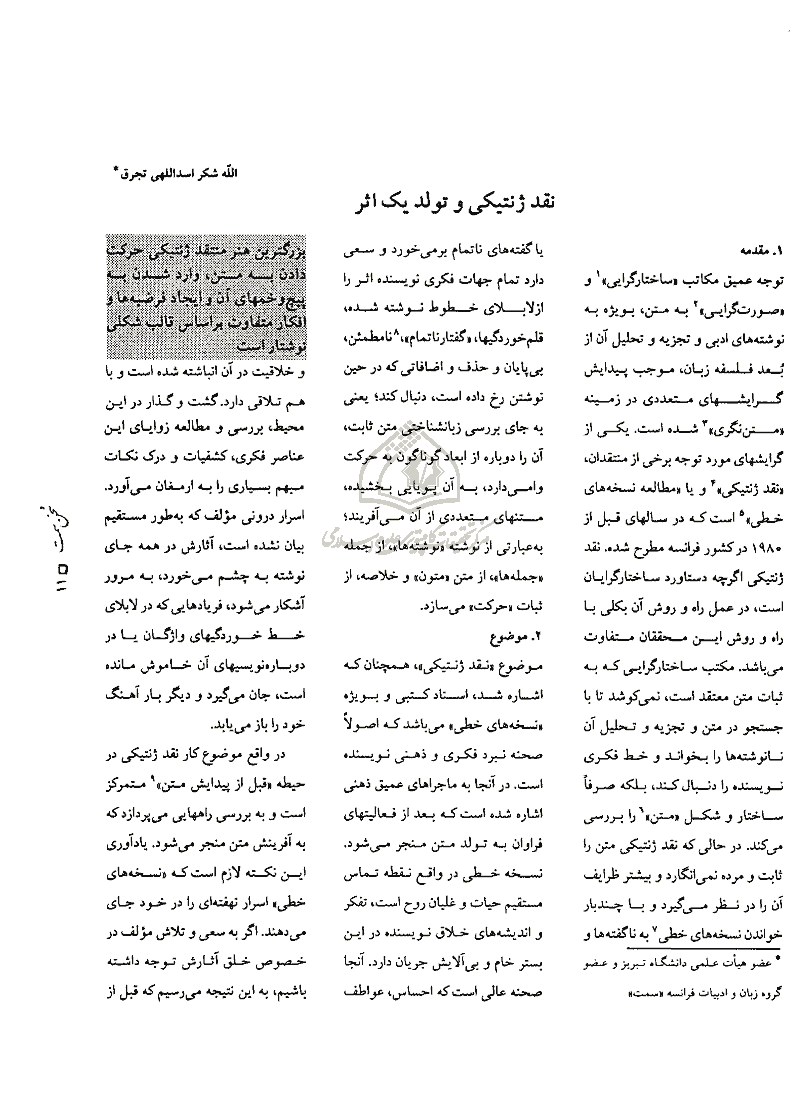 الله شکر اسداللهی تجرق*
نقد ژنتیکی و تولد یک اثر
۱. مقدمه
توجه عمیق مکاتب «ساختارگرایی»۱ و
«صورت‌گرایی»۲ به متن، بویژه به
نوشته‌های ادبی و تجزیه و تحلیل آن از
بُعد فلسفه زبان، موجب پیدایش
گرایشهای متعددی در زمینه
«متن‌نگری»۳ شده است. یکی از
گرایشهای مورد توجه برخی از منتقدان،
«نقد ژنتیکی»۴ و یا «مطالعه نسخه‌های
خطی»۵ است که در سالهای قبل از
۱۹۸۰ در کشور فرانسه مطرح شده. نقد
ژنتیکی اگرچه دستاورد ساختارگرایان
است، در عمل راه و روش آن بکلی با
راه و روش این محققان متفاوت
می‌باشد. مکتب ساختارگرایی که به
ثبات متن معتقد است، نمی‌کوشد تا با
جستجو در متن و تجزیه و تحلیل آن
نانوشته‌ها را بخواند و خط فکری
نویسنده را دنبال کند، بلکه صرفاً
ساختار و شکل «متن»۶ را بررسی
می‌کند. در حالی که نقد ژنتیکی متن را
ثابت و مرده نمی‌انگارد و بیشتر ظرایف
آن را در نظر می‌گیرد و با چندبار
خواندن نسخه‌های خطی۷ به ناگفته‌ها و
* عضو هیأت علمی دانشگاه تبریز و عضو
گروه زبان و ادبیات فرانسه «سمت»
یا گفته‌های ناتمام برمی‌خورد و سعی
دارد تمام جهات فکری نویسنده اثر را
ازلابلای خطوط نوشته شده،
قلم‌خوردگیها، «گفتارناتمام»،۸ نامطمئن،
بی‌پایان و حذف و اضافاتی که در حین
نوشتن رخ داده است، دنبال کند؛ یعنی
به جای بررسی زبانشناختی متن ثابت،
آن را دوباره از ابعاد گوناگون به حرکت
وامی‌دارد، به آن پویایی بخشیده،
متنهای متعددی از آن می‌آفریند؛
به‌عبارتی از نوشته «نوشته‌ها»، از جمله
«جمله‌ها»، از متن «متون» و خلاصه، از
ثبات «حرکت» می‌سازد.
۲. موضوع
موضوع «نقد ژنتیکی»، همچنان که
اشاره شد، اسناد کتبی و بویژه
«نسخه‌های خطی» می‌باشد که اصولاً
صحنه نبرد فکری و ذهنی نویسنده
است. در آنجا به ماجراهای عمیق ذهنی
اشاره شده است که بعد از فعالیتهای
فراوان به تولد متن منجر می‌شود.
نسخه خطی در واقع نقطه تماس
مستقیم حیات و غلیان روح است، تفکر
و اندیشه‌های خلاق نویسنده در این
بستر خام و بی‌آلایش جریان دارد. آنجا
صحنه عالی است که احساس، عواطف
بزرگترین هنر منتقد ژنتیکی حرکت
دادن به متن، وارد شدن به
پیچ‌وخمهای آن و ایجاد فرضیه‌ها و
افکار متفاوت براساس قالب شکلی
نوشتار است
و خلاقیت در آن انباشته شده است و با
هم تلاقی دارد. گشت و گذار در این
محیط، بررسی و مطالعه زوایای این
عناصر فکری، کشفیات و درک نکات
مبهم بسیاری را به ارمغان می‌آورد.
اسرار درونی مؤلف که به‌طور مستقیم
بیان نشده است، آثارش در همه جای
نوشته به چشم می‌خورد، به مرور
آشکار می‌شود، فریادهایی که در لابلای
خط خوردگیهای واژگان یا در
دوباره‌نویسیهای آن خاموش مانده
است، جان می‌گیرد و دیگر بار آهنگ
خود را باز می‌یابد.
در واقع موضوع کار نقد ژنتیکی در
حیطه «قبل از پیدایش متن»۹ متمرکز
است و به بررسی راههایی می‌پردازد که
به آفرینش متن منجر می‌شود. یادآوری
این نکته لازم است که «نسخه‌های
خطی» اسرار نهفته‌ای را در خود جای
می‌دهند. اگر به سعی و تلاش مؤلف در
خصوص خلق آثارش توجه داشته
باشیم، به این نتیجه می‌رسیم که قبل از
سخن سمت ۱۱۵